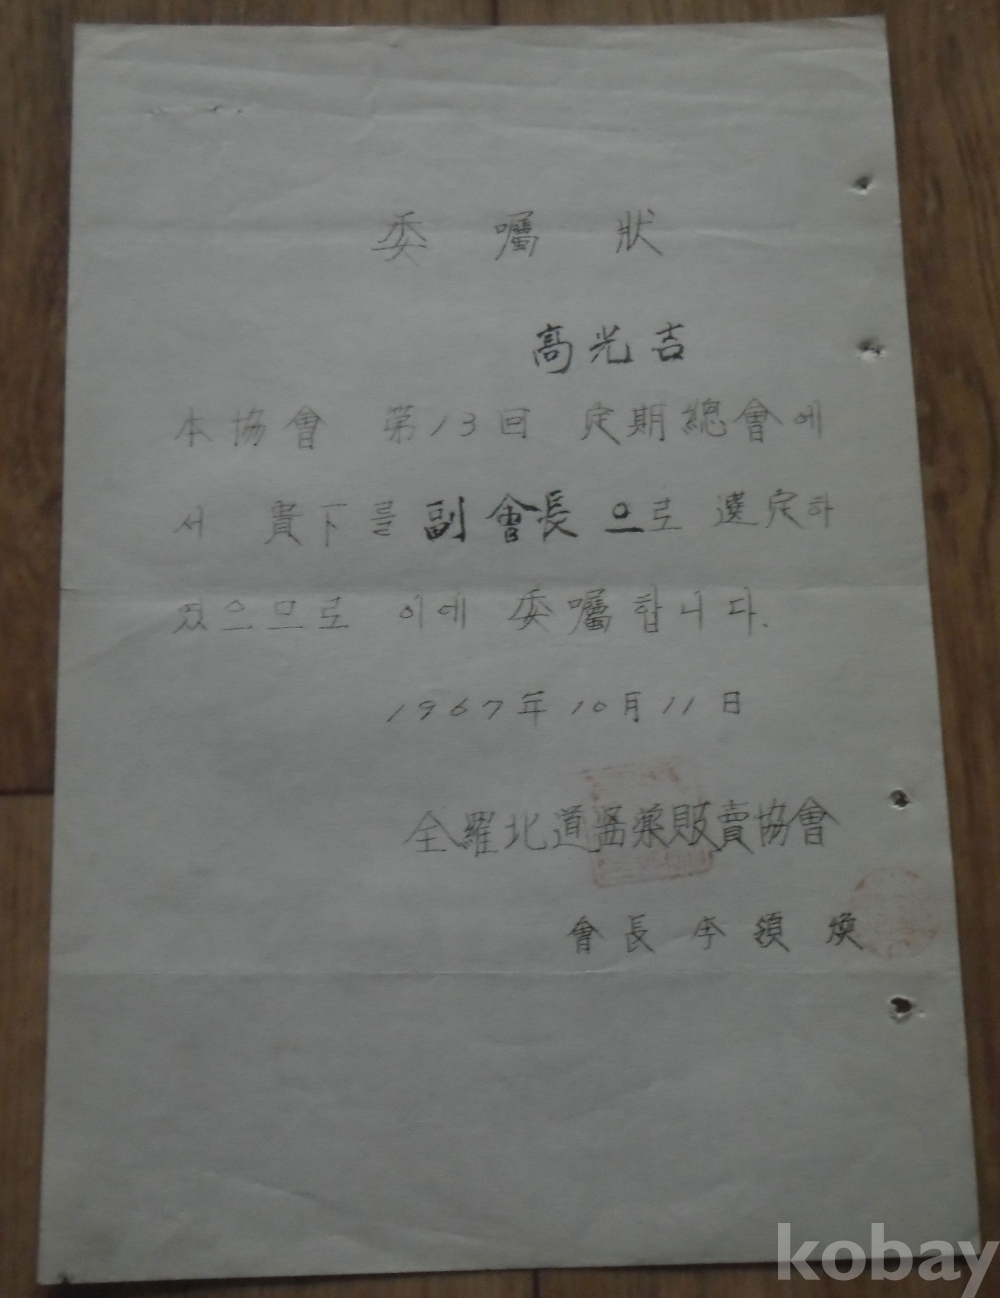 委囑狀
高光吉
本協會 第13回 定期總會에
서 貴下를 副會長으로 選定하
였으므로 이에 委囑합니다.
1967年 10月 11日
全羅北道醫藥販賣協會
會長 李 煥
kobay